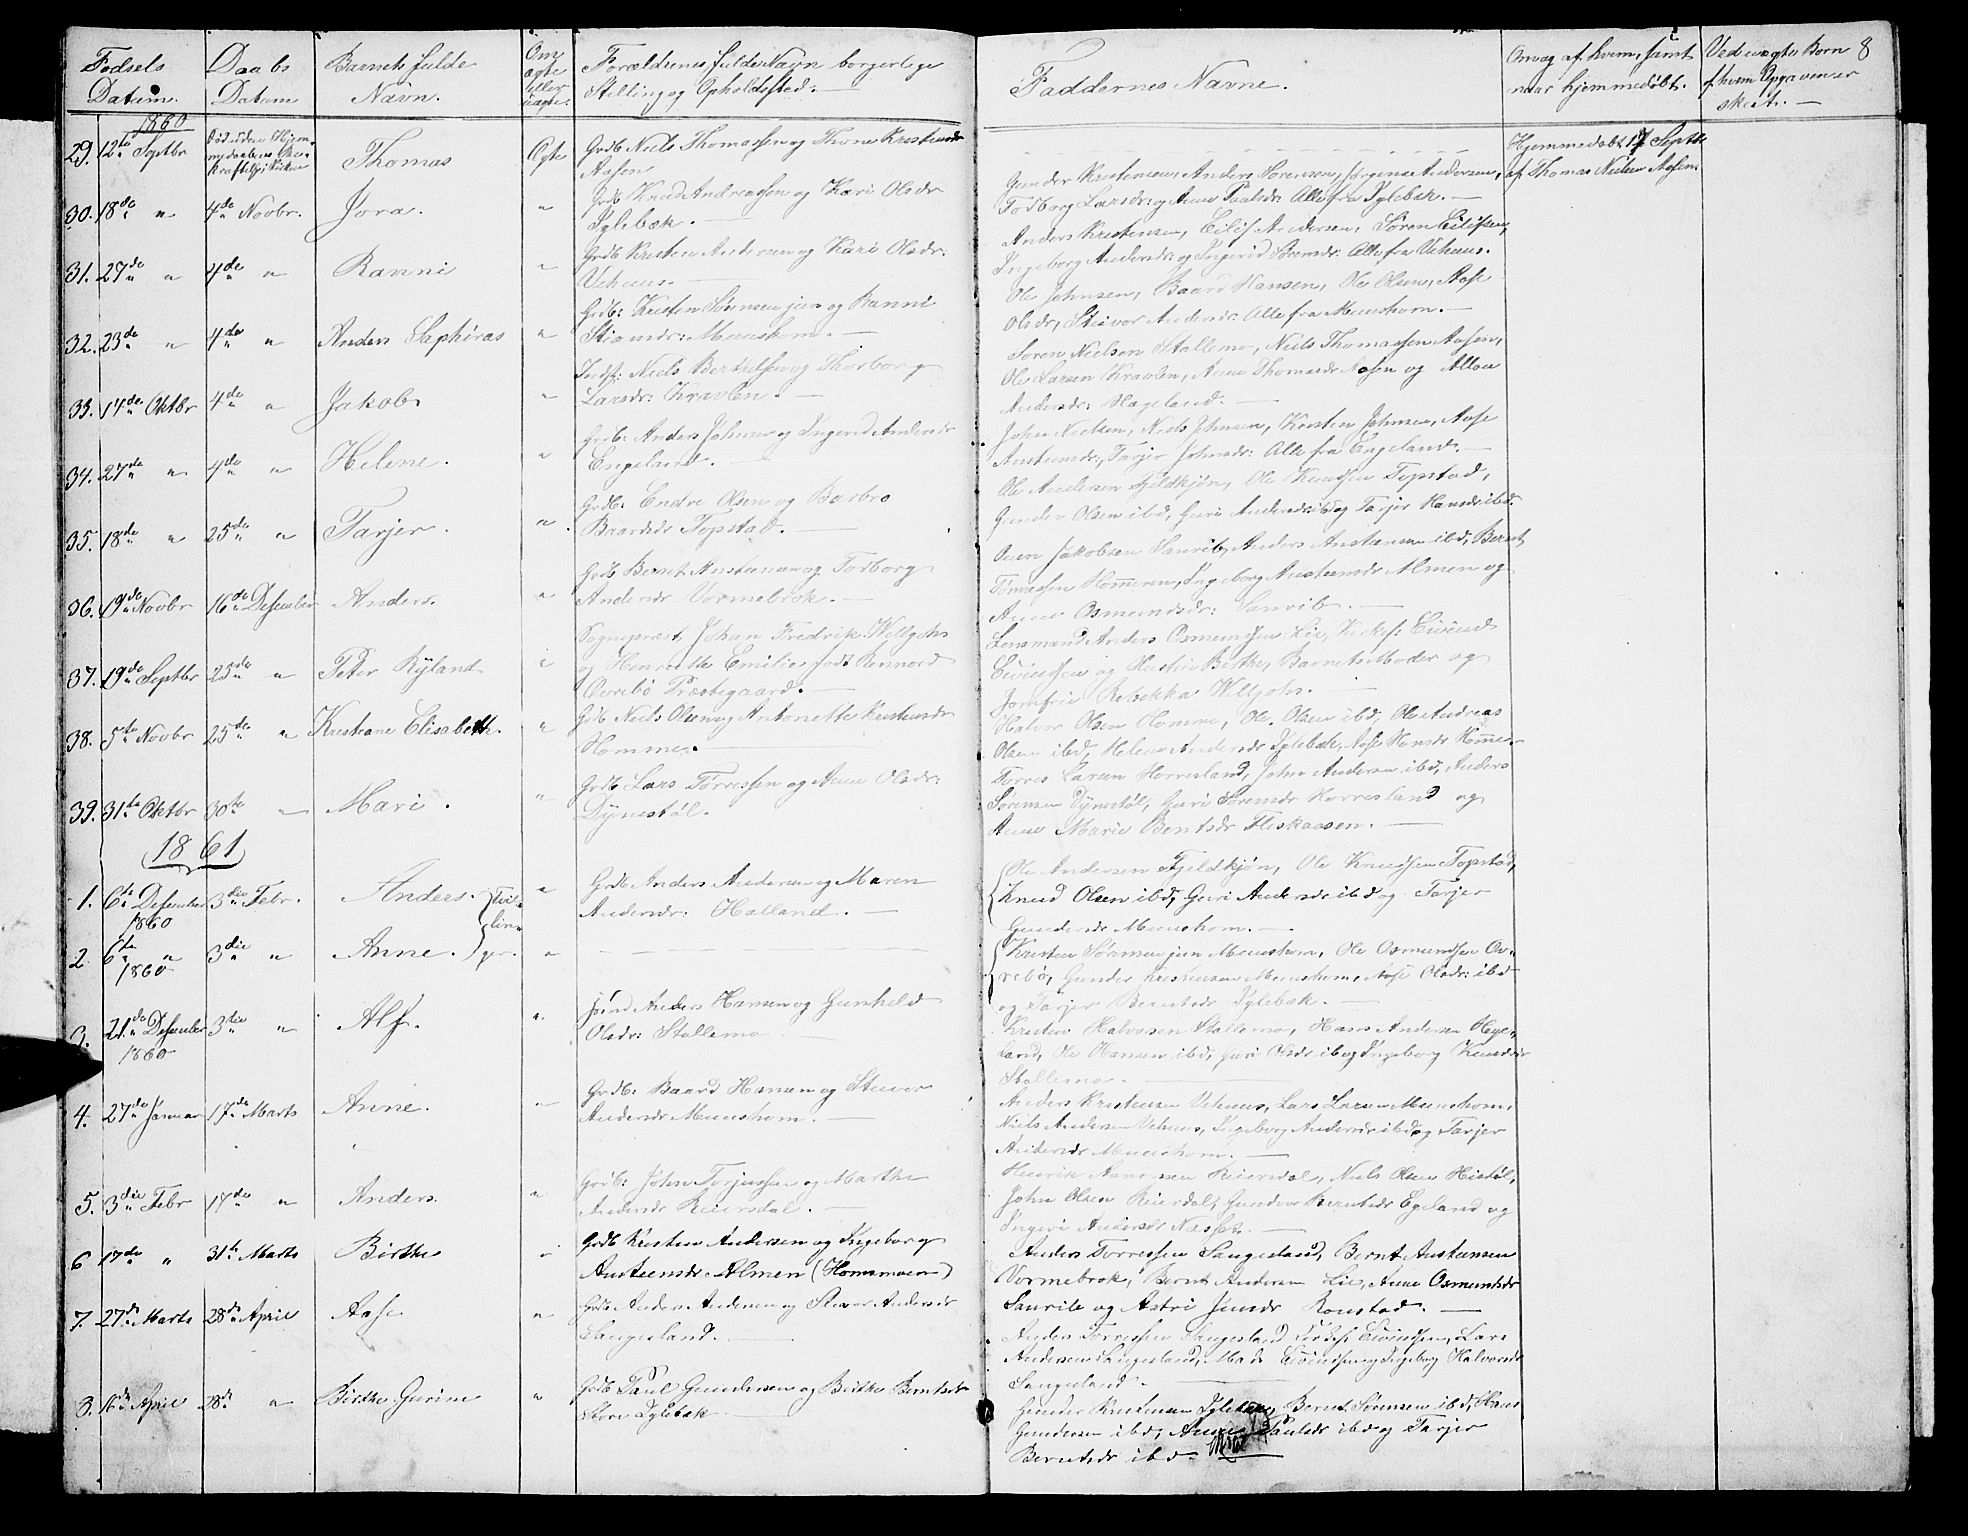 Fødsels Datum.
Daabs Datum
Barnets fulde Navn.
Om ægte eller uægte.
Forældrenes fulde Navn borgerlige Stilling og Opholdssted.
Faddernes Navne.
Om og af hvem, samt naar hjemmedøbt.
Ved uægte Børn af hvem Opgaven er skeet.
8
1860
29. 12te Septbr Thomas Ægte Grdb Niels Thomassen og Thone Kristensdr
Aasen
Hjemmedøbt 17 Septbr
af Thomas Nielsen Aasen.
30. 18de " 4de Novbr. Jora. " Grdb Knud Andreassen og Kari Olsdr
Iglebæk.
Gunder Kristensen, Anders Sørensen, Jørgen Andersen,
Todborg Larsdr og Anne Paalsdr Alle fra Iglebæk.
31. 27de " 4de " Ranni " Grdb Kristen Andersen og Kari Olsdr.
Vehuus.
Anders Kristensen, Eilif Andersen, Søren Eilifsen,
Ingeborg Andersdr og Ingerid Sørensdr Alle fra Vehuus.
32. 23de " 4de " Anders Saphiras " Grdb: Kristen Sørensen jun og Ranni
Stiansdr: Muushom.
Ole Johnsen, Baard Hansen, Ole Olsen, Aase
Olsdr, Stivor Andersdr Alle fra Muushom.
33. 14de Oktbr 4de " Jakob " Indst: Niels Berthelsen og Thorborg
Larsdr: Kravlen.
Søren Nielsen Stallemo, Niels Thomassen Aasen,
Ole Larsen Kravlen, Anne Thomasdr Aasen og
Andersdr: Hageland.
34. 27de " 4de " Helene. " Grdb: Anders Johnsen og Ingerid Andersdr
Engeland.
John Nielsen, Niels Johnsen, Kristen Johnsen, Aase
Austensdr:, Tarjer Johnsdr: Alle fra Engeland.
35. 18de " 25de " Tarjer. " Grdb: Endre Olsen og Barbro
Baardsdr Topstad.
Ole Andersen Fjeldkjøn, Ole Knudsen Topstad,
Gunder Olsen ibd, Guri Andersdr ibd og Tarjer Hansdr ibd.
36. 19de Novbr 16de Desember Anders. " Grdb Bernt Austensen og Todborg
Andersdr Vormebrok.
Jakobsen Sanrib, Anders Austensen ibd, Bernt
Tønnessen Homeren, Ingeborg Austensdr Almen og
Anne Osmundsdr: Sanrib.
37. 19de Septbr 25de " Peter Ryland " Sognepræst Johan Fredrik Wellzohs
og Henriette Emilie født Rennord
Øvrebø Præstegaard.
Lensmand Anders Osmundsen Lie, Kirkes: Eivind
Eivindsen og Hustru Birthe, Barnets Moder og
Jomfrue Rebekka
38. 5te Novbr 25de " Kristiane Elisabeth. " Grdb Niels Olsen og Antonette Kristensdr
Homme.
Halvor Olsen Homme, Ole Olsen ibd, Ole Andreas
Olsen ibd, Helene Andersdr Iglebæk, Aase Hansdr Homme.
39. 31te Oktbr 30te " Mari. " Grdb Lars Torressen og Anne Olsdr:
Dynestøl.
Torres Larsen Horresland, John Andersen ibd, Anders
Sørensen Dynestøl, Guri Sørensdr Horresland og
Anne Marie Berntsdr Fliskaasen.
1861
1. 6te Desember 3die Febr. Anders. Tvillin " Grdb Anders Andersen og Maren
1860
Andersdr: Halland.
Ole Andersen Fjeldkjøn, Ole Knudsen Topstad,
Knud Olsen ibd, Guri Andersdr ibd og Tarjer
Gundersdr Muushom.
2. 6te " 3die " Anne. ger. "
1860
Kristen Sørensen jun Muushom, Ole Osmundsen Øv-
rebø, Gunder Kristensen Muushom, Aase Olsdr: ibd
og Tarjer Berntsdr Iglebæk.
3. 21de Desember 3die " Alf. " Anders Hansen og Gunhild
1860
Olsdr: Stallemo
Kristen Halvorsen Stallemo, Hans Andersen Hege-
land, Ole Hansen ibd, Guri Olsdr ib og Ingeborg Knudsdr
Stallemo.
4. 27de Januar 17de Marts Anne. " Grdb: Baard Hansen og Stivor
Andersdr Muushom.
Anders Kristensen Vehuus, Lars Larsen Muushom,
Niels Andersen Vehuus, Ingeborg Andersdr ibd og Tarjer
Andersdr Muushom.
5. 3die Febr 17de " Anders. " Grdb: John Torjussen og Marthe
Andersdr Reiersdal.
Henrik Aanensen Reiersdal, Niels Olsen Histøl,
John Olsen Reiersdal, Gundvor Berntsdr Egeland og
Andersdr Næsset.
6 17de " 31te Marts Birthe " Grdb Kristen Andersen og Ingeborg
Austensdr Almen (Homsmoen)
Anders Torressen Saugesland, Bernt Austensen
Vormebrok, Bernt Andersen Lie, Anne Osmundsdr
Sanrib og Astri Jensdr Ronstad.
7. 27de Marts 28de April Aase " Grdb Anders Andersen og Stivor Andersdr
Saugesland.
Anders Torressen Saugesland Eivindsen, Lars
Andersen Saugesland, Eivindsen og Ingeborg Halvorsdr
Saugesland.
8. 16de April 28de " Birthe Gurine " Grdb Paul Gundersen og Birthe Berntsdr
Store Iglebæk
Gunder Kristensen Iglebæk, Bernt Sørensen ibd, Hans
Gundersen ibd, Anne Paulsdr ibd og Tarjer
Berntsdr ibd.